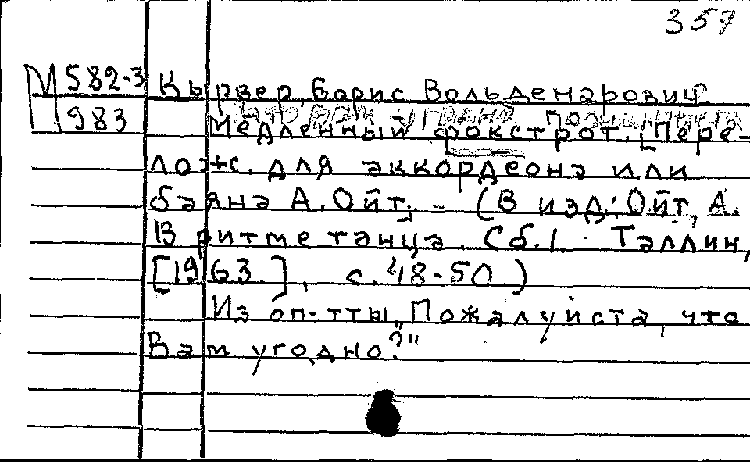 357
М 582-3 Кырвер, Борис Вольдемарович
983 Медленный фокстрот. [Пере-
лож. для аккордеона или
баяна А. Ойт]. - (В изд: Ойт, А.
В ритме танца. Сб. 1. Таллин,
[1963.], с. 48-50)
Из оп-тты "Пожалуйста, что
Вам угодно?"